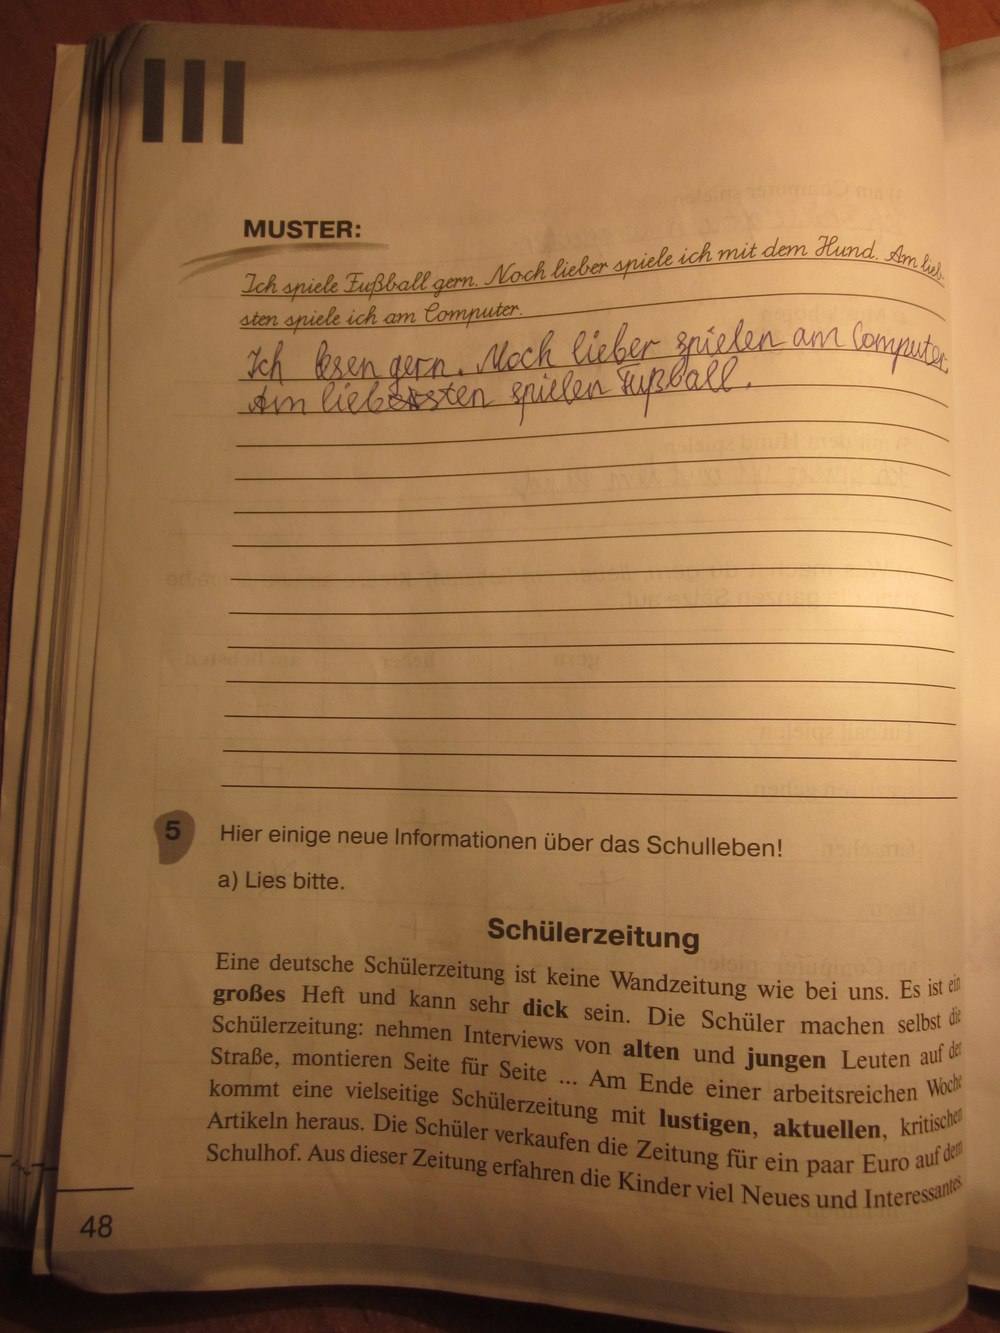 III
MUSTER:
Ich spiele Fußball gern. Noch lieber spiele ich mit dem Hund. Am lieb-
sten spiele ich am Computer.
Ich lesen gern. Noch lieber spielen am Computer.
Am liebsten spielen Fußball.
5 Hier einige neue Informationen über das Schulleben!
a) Lies bitte.
Schülerzeitung
Eine deutsche Schülerzeitung ist keine Wandzeitung wie bei uns. Es ist ein
großes Heft und kann sehr dick sein. Die Schüler machen selbst die
Schülerzeitung: nehmen Interviews von alten und jungen Leuten auf der
Straße, montieren Seite für Seite ... Am Ende einer arbeitsreichen Woche
kommt eine vielseitige Schülerzeitung mit lustigen, aktuellen, kritischen
Artikeln heraus. Die Schüler verkaufen die Zeitung für ein paar Euro auf dem
Schulhof. Aus dieser Zeitung erfahren die Kinder viel Neues und Interessantes.
48